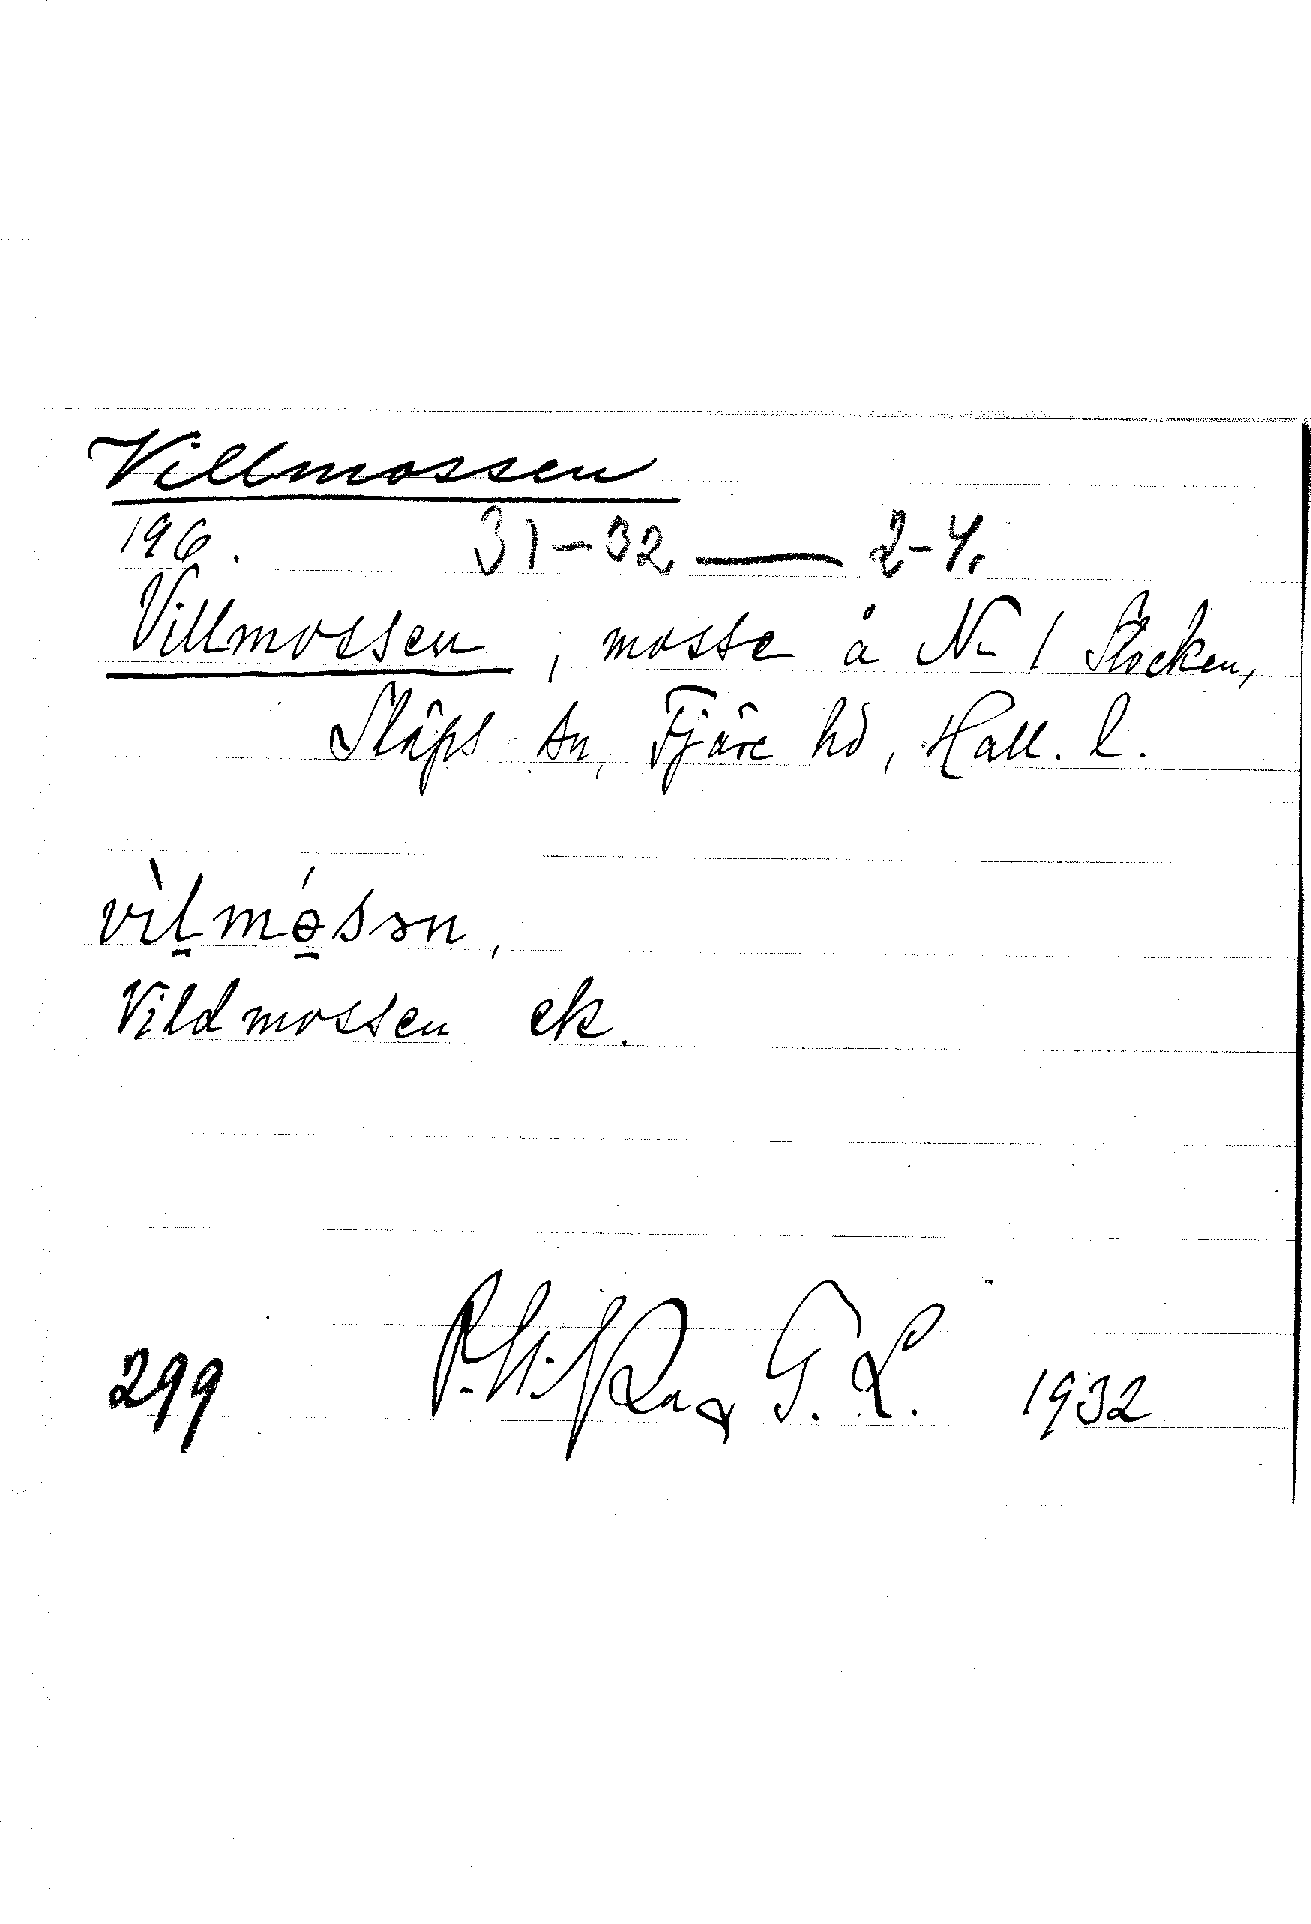 Villmossen
196. 31-32 — 2-4.
Villmossen, mosse å Nr 1 Stocken,
Släps sn, Fjäre hd, Hall. l.
vìl̠mó̠sən,
Vildmossen ek.
299 G. L. 1932